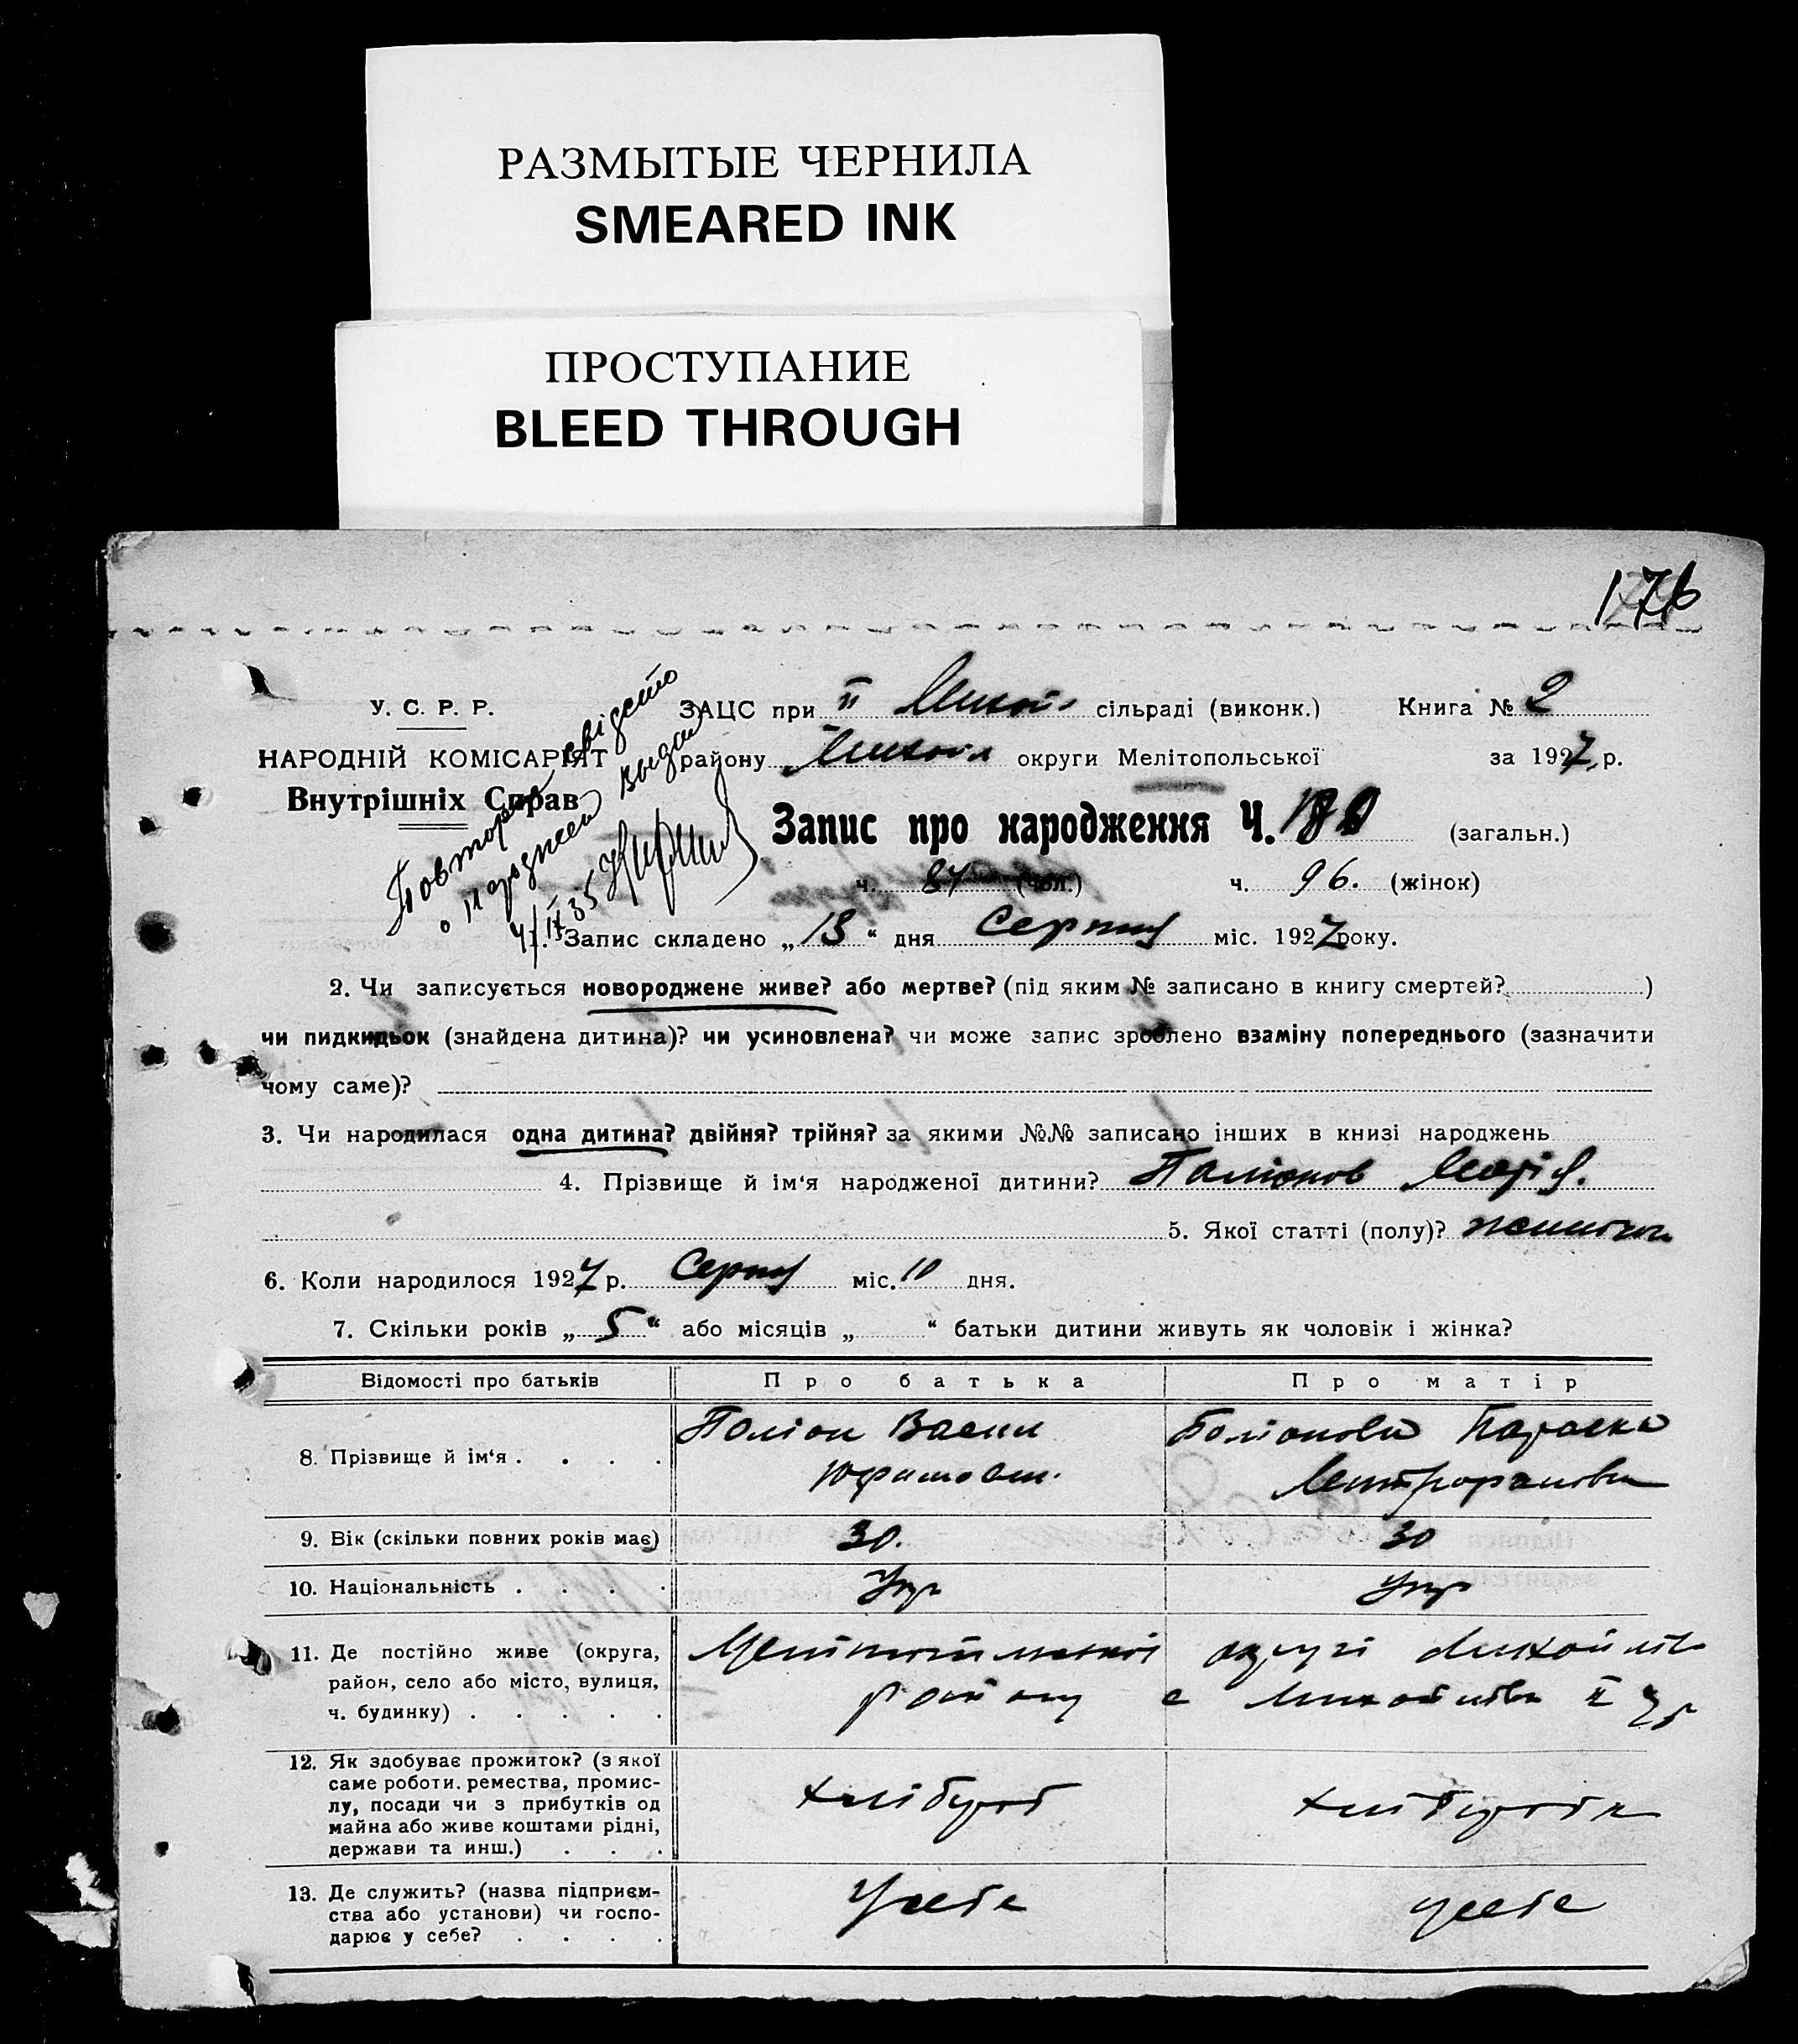 РАЗМЫТЫЕ ЧЕРНИЛА
SMEARED INK
ПРОСТУПАНИЕ
BLEED THROUGH
176
У. С. Р. Р.
НАРОДНІЙ КОМІСАРІЯТ
Внутрішніх Справ
Повторне свідотво
о народжен видан
4/IX 35
ЗАЦС при II Михай сільраді (виконк.) Книга № 2
району Михайл округи Мелітопольської за 1927 р.
Запис про народження Ч. (загальн.)
ч. 87 (чол.) ч. 96. (жінок)
1. Запис складено „13“ дня Серпня міс. 1927 року.
2. Чи записується новороджене живе? або мертве? (під яким № записано в книгу смертей? )
чи пидкидьок (знайдена дитина)? чи усиновлена? чи може запис зроблено взаміну попереднього (зазначити
чому саме)?
3. Чи народилася одна дитина? двійня? трійня? за якими №№ записано інших в книзі народжень
4. Прізвище й ім‘я народженої дитини? Паліонов Марія.
5. Якої статті (полу)? жиночої
6. Коли народилося 1927 р. Серпня міс. 10 дня.
7. Скільки років „5“ або місяців „ “ батьки дитини живуть як чоловік і жінка?
Відомості про батьків Про батька Про матір
8. Прізвище й ім‘я . . . . Поліон Васил Поліонова Параска
Юхимович. Митрофановна
9. Вік (скільки повних років має) 30. 30
10. Національність . . . . Укр Укр
11. Де постійно живе (округа, Мелітопільської округи Михайлів
район, село або місто, вулиця, району с Михайлівка II
ч. будинку) . . . . .
12. Як здобуває прожиток? (з якої
саме роботи. ремества, промис-
лу, посади чи з прибутків од хлібороб хліборобка
майна або живе коштами рідні,
держави та инш.) . . .
13. Де служить? (назва підприєм- У себе у себе
ства або установи) чи госпо-
дарює у себе? . . . .